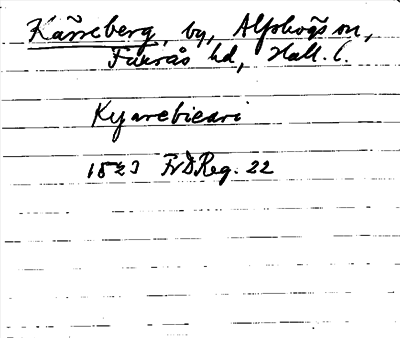 Kärreberg, by, Alfshögs sn,
Faurås hd, Hall. l.
Kyarebierri
1523 FrDReg. 22